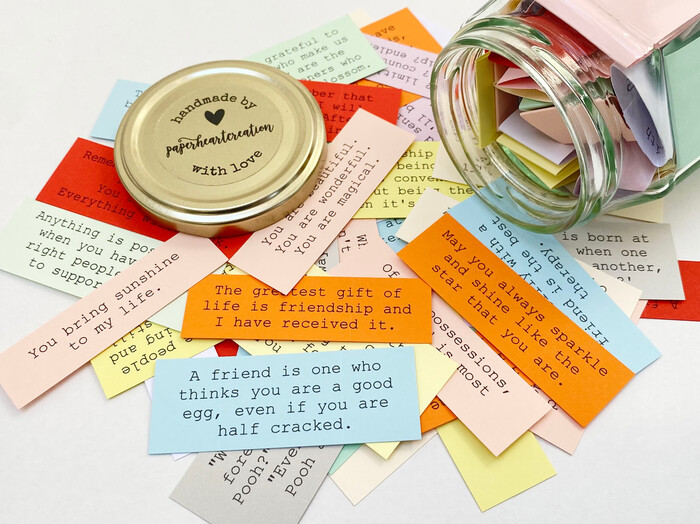 grateful to
who make us
are the
ners who
ossom.
endless
limit
handmade by
paperheartcreation
with love
ber that
I will
Reme
You
Everything w
You are beautiful.
You are wonderful.
You are magical.
ership
being
conven
but being the
n it's
Anything is pos
when you have
right people
to support
You bring sunshine
to my life.
people
ing and
The greatest gift of
life is friendship and
I have received it.
A friend is one who
thinks you are a good
egg, even if you are
half cracked.
May you always sparkle
and shine like the
star that you are.
friend is the best
with a
therapy.
is born at
when one
another,
possessions,
is most
"W
fore
Pooh?"
"Even
Pooh.